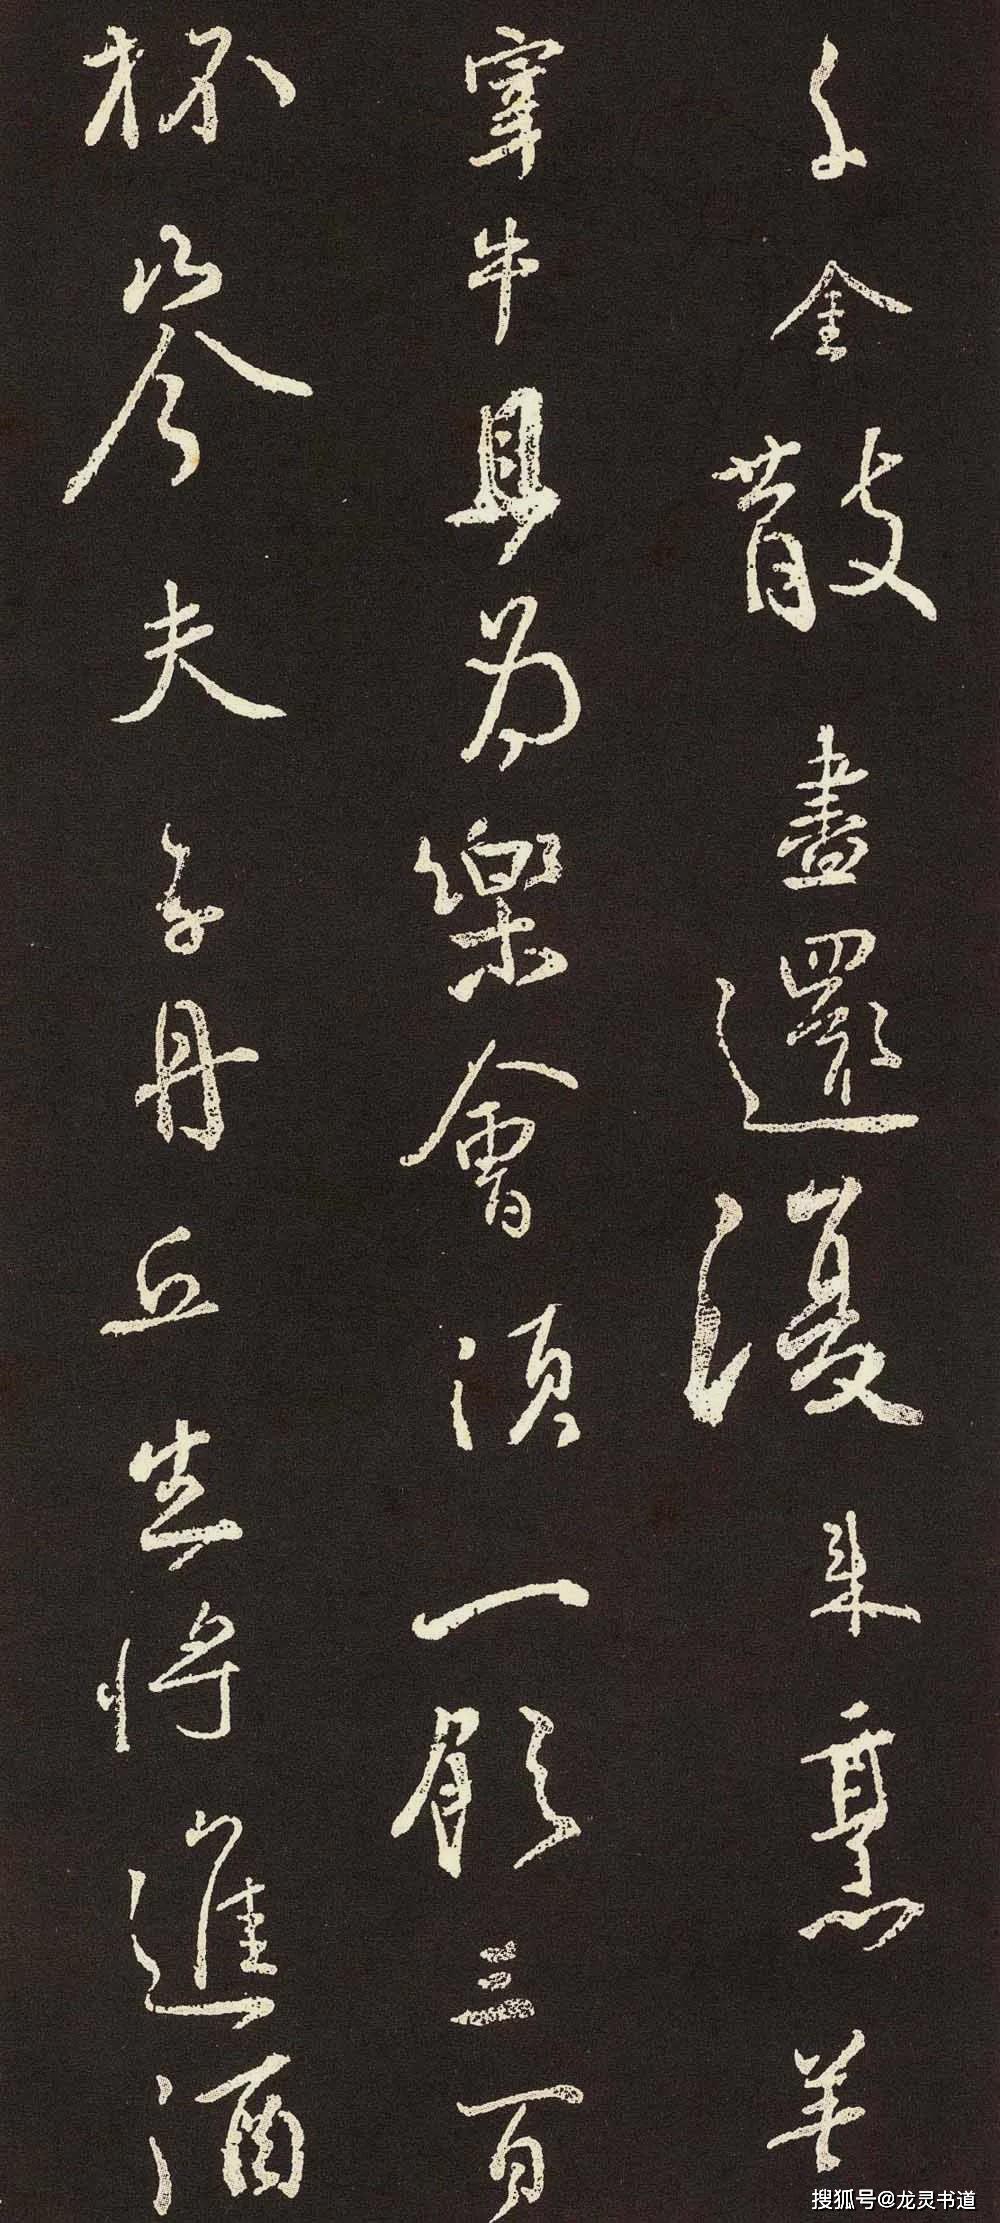 千金散盡還復来烹羊
宰牛且為樂會須一飲三百
杯岑夫子丹丘生将進酒
搜狐号@龙灵书道